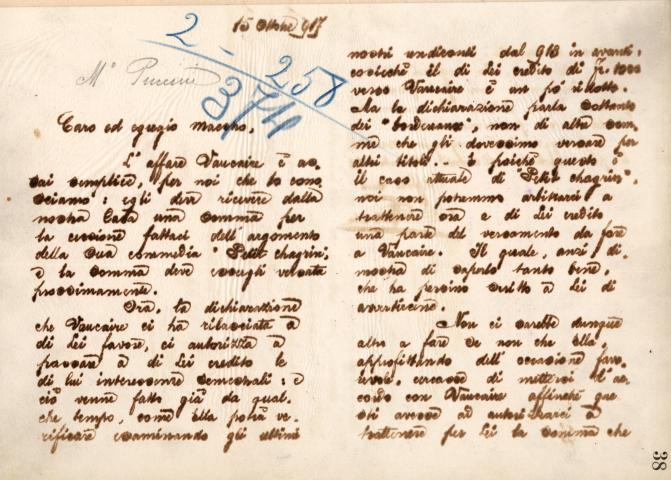 15 ottobre 917
2 - 258
374
Mº Puccini
Caro ed egregio maestro,
L'affare Vaucaire è as-
sai semplice, per noi che lo cono-
sciamo: egli deve ricevere dalla
nostra Casa una somma per
la cessione fattaci dell'argomento
della sua commedia "Petit chagrin",
e la somma deve essergli versata
prossimamente.
Ora, la dichiarazione
che Vaucaire ci ha rilasciata a
di Lei favore, ci autorizza a
passare a di Lei credito le
di lui interessenze semestrali: e
ciò venne fatto già da qual-
che tempo, come Ella potrà ve-
rificare esaminando gli ultimi
nostri rendiconti dal 913 in avanti:
cosicchè il di Lei credito di fr.
verso Vaucaire è un po' ridotto.
Ma la dichiarazione parla soltanto
dei "bordereaux", non di altre som-
me che gli dovessimo versare per
altri titoli... E poichè questo è
il caso attuale di "Petit chagrin",
noi non potremmo arbitrarci a
trattenere ora e di Lei credito
una parte del versamento da fare
a Vaucaire. Il quale, anzi, di-
mostra di saperlo tanto bene,
che ha persino scritto a Lei di
avvertircene.
Non ci sarebbe dunque
altro a fare se non che Ella,
approfittando dell'occasione favo-
revole, cercasse di mettersi d'ac-
cordo con Vaucaire affinchè que-
sti avesse ad autorizzarci a
trattenere per Lei la somma che
38